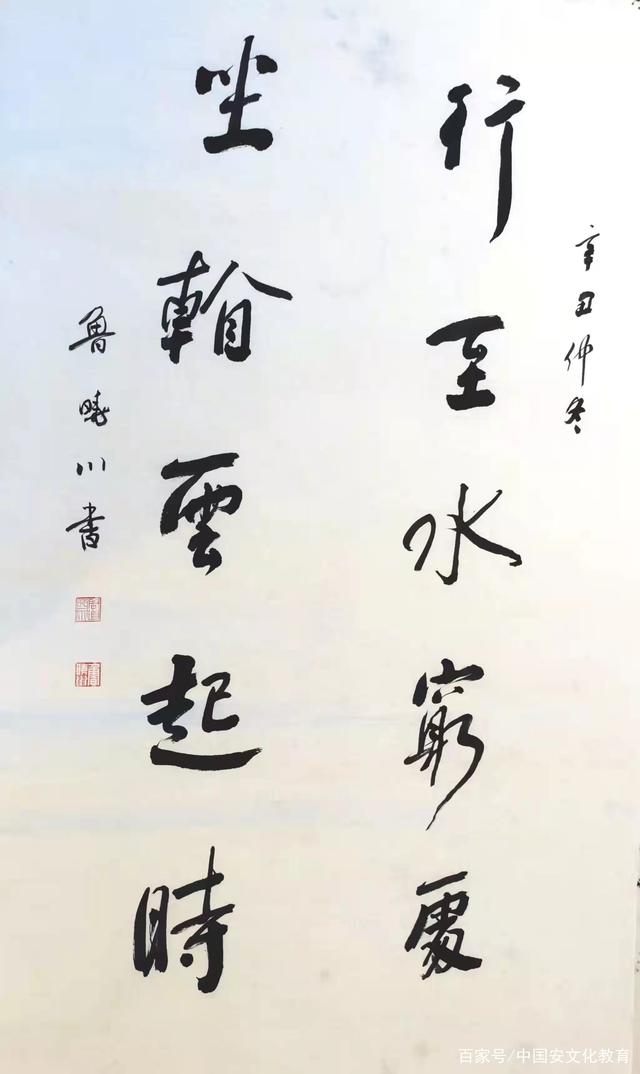 辛丑仲冬
行至水窮處
坐看雲起時
魯曉川書
百家号/中国安文化教育